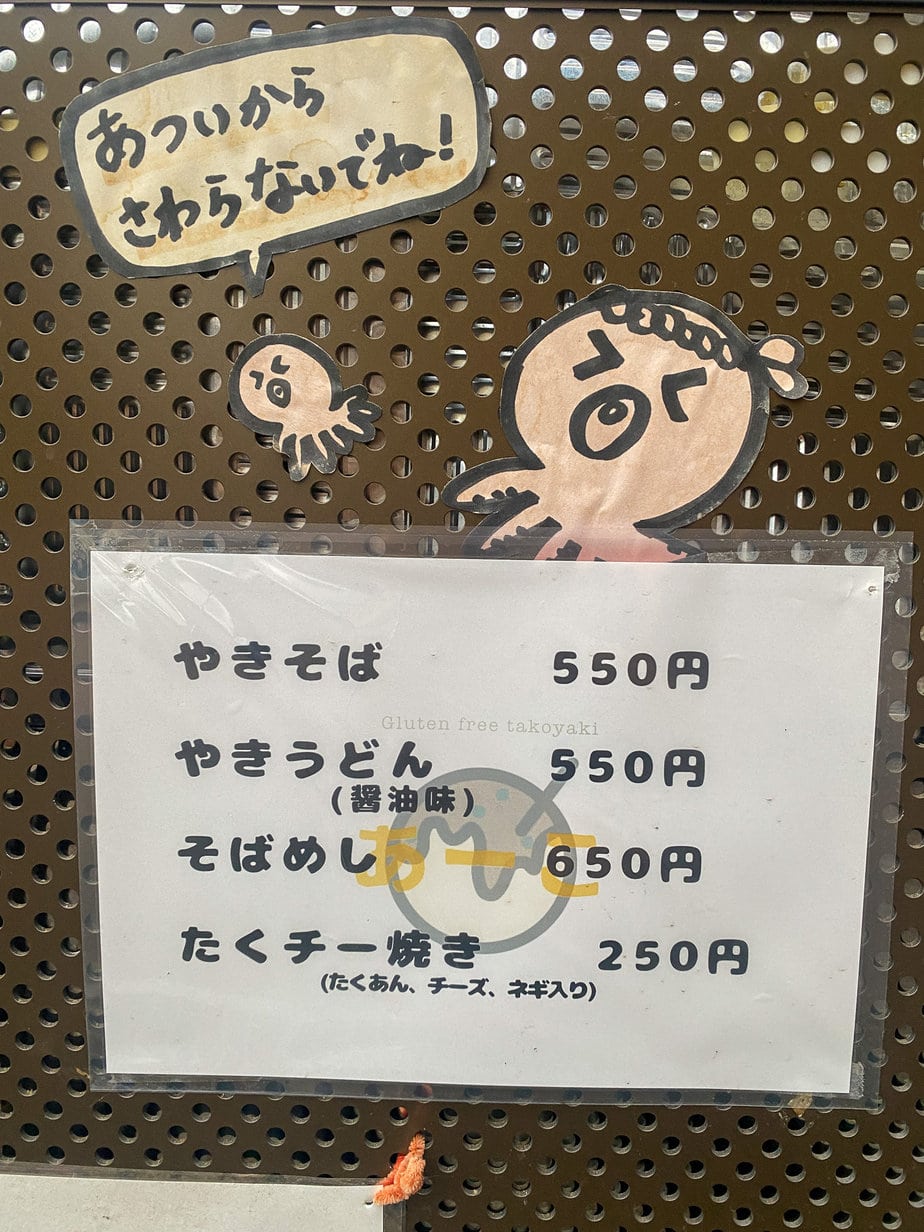 あついから
さわらないでね!
やきそば 550円
Gluten free takoyaki
やきうどん 550円
(醤油味)
そばめし 650円
あーこ
たくチー焼き 250円
(たくあん、チーズ、ネギ入り)